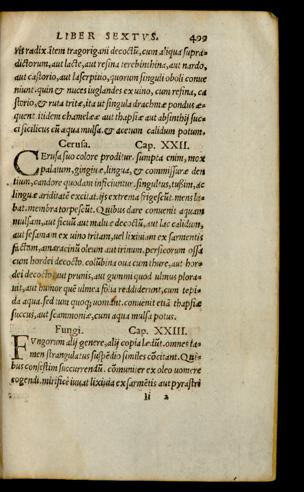 LIBER SEXTVS. 499
ris radix, item tragorigani decoctũ, cum aliqua supra-
dictorum, aut lacte, aut resina terebinthina, aut nardo,
aut castorio, aut laserpitio, quorum singuli oboli conue
niunt. quin & nuces iuglandes ex uino, cum resina, ca
storio, & ruta tritæ, ita ut singula drachmæ pondus æ-
quent. itidem chameleæ aut thapsiæ aut absinthij suc⸗
ci sicilicus cũ aqua mulsa. & acetum calidum potum.
Cerusa. Cap. XXII.
CErusa suo colore proditur. sumpta enim, mox
palatum, gingiuæ, lingua, & commissuræ den
tium, candore quodam inficiuntur. singultus, tussim, ac
linguæ ariditatẽ excitat. ijs extrema frigescũt. mens la⸗
bat. membra torpescũt. Quibus dare conuenit aquam
mulsam, aut ficuũ aut maluæ decoctũ, aut lac calidum,
aut sesamam ex uino tritam, uel lixiuiam ex sarmentis
factam, amaracinũ oleum aut irinum. persicorum ossa
cum hordei decocto. columbina oua cum thure, aut hor-
dei decocto, aut prunis, aut gummi quod ulmus plora-
uit, aut humor quẽ ulmea folia reddiderunt, cum tepi-
da aqua. sed tum quoq; uomant. conuenit etiã thapsiæ
succus, aut scammoniæ, cum aqua mulsa potus.
Fungi. Cap. XXIII.
FVngorum alij genere, alij copia lædũt. omnes ta-
men strangulatus suspẽdio similes cõcitant. Qui-
bus confestim succurrendũ. cõmuniter ex oleo uomere
cogendi. mirifice iuuat lixiuia ex sarmẽtis aut pyrastri
Ii 2